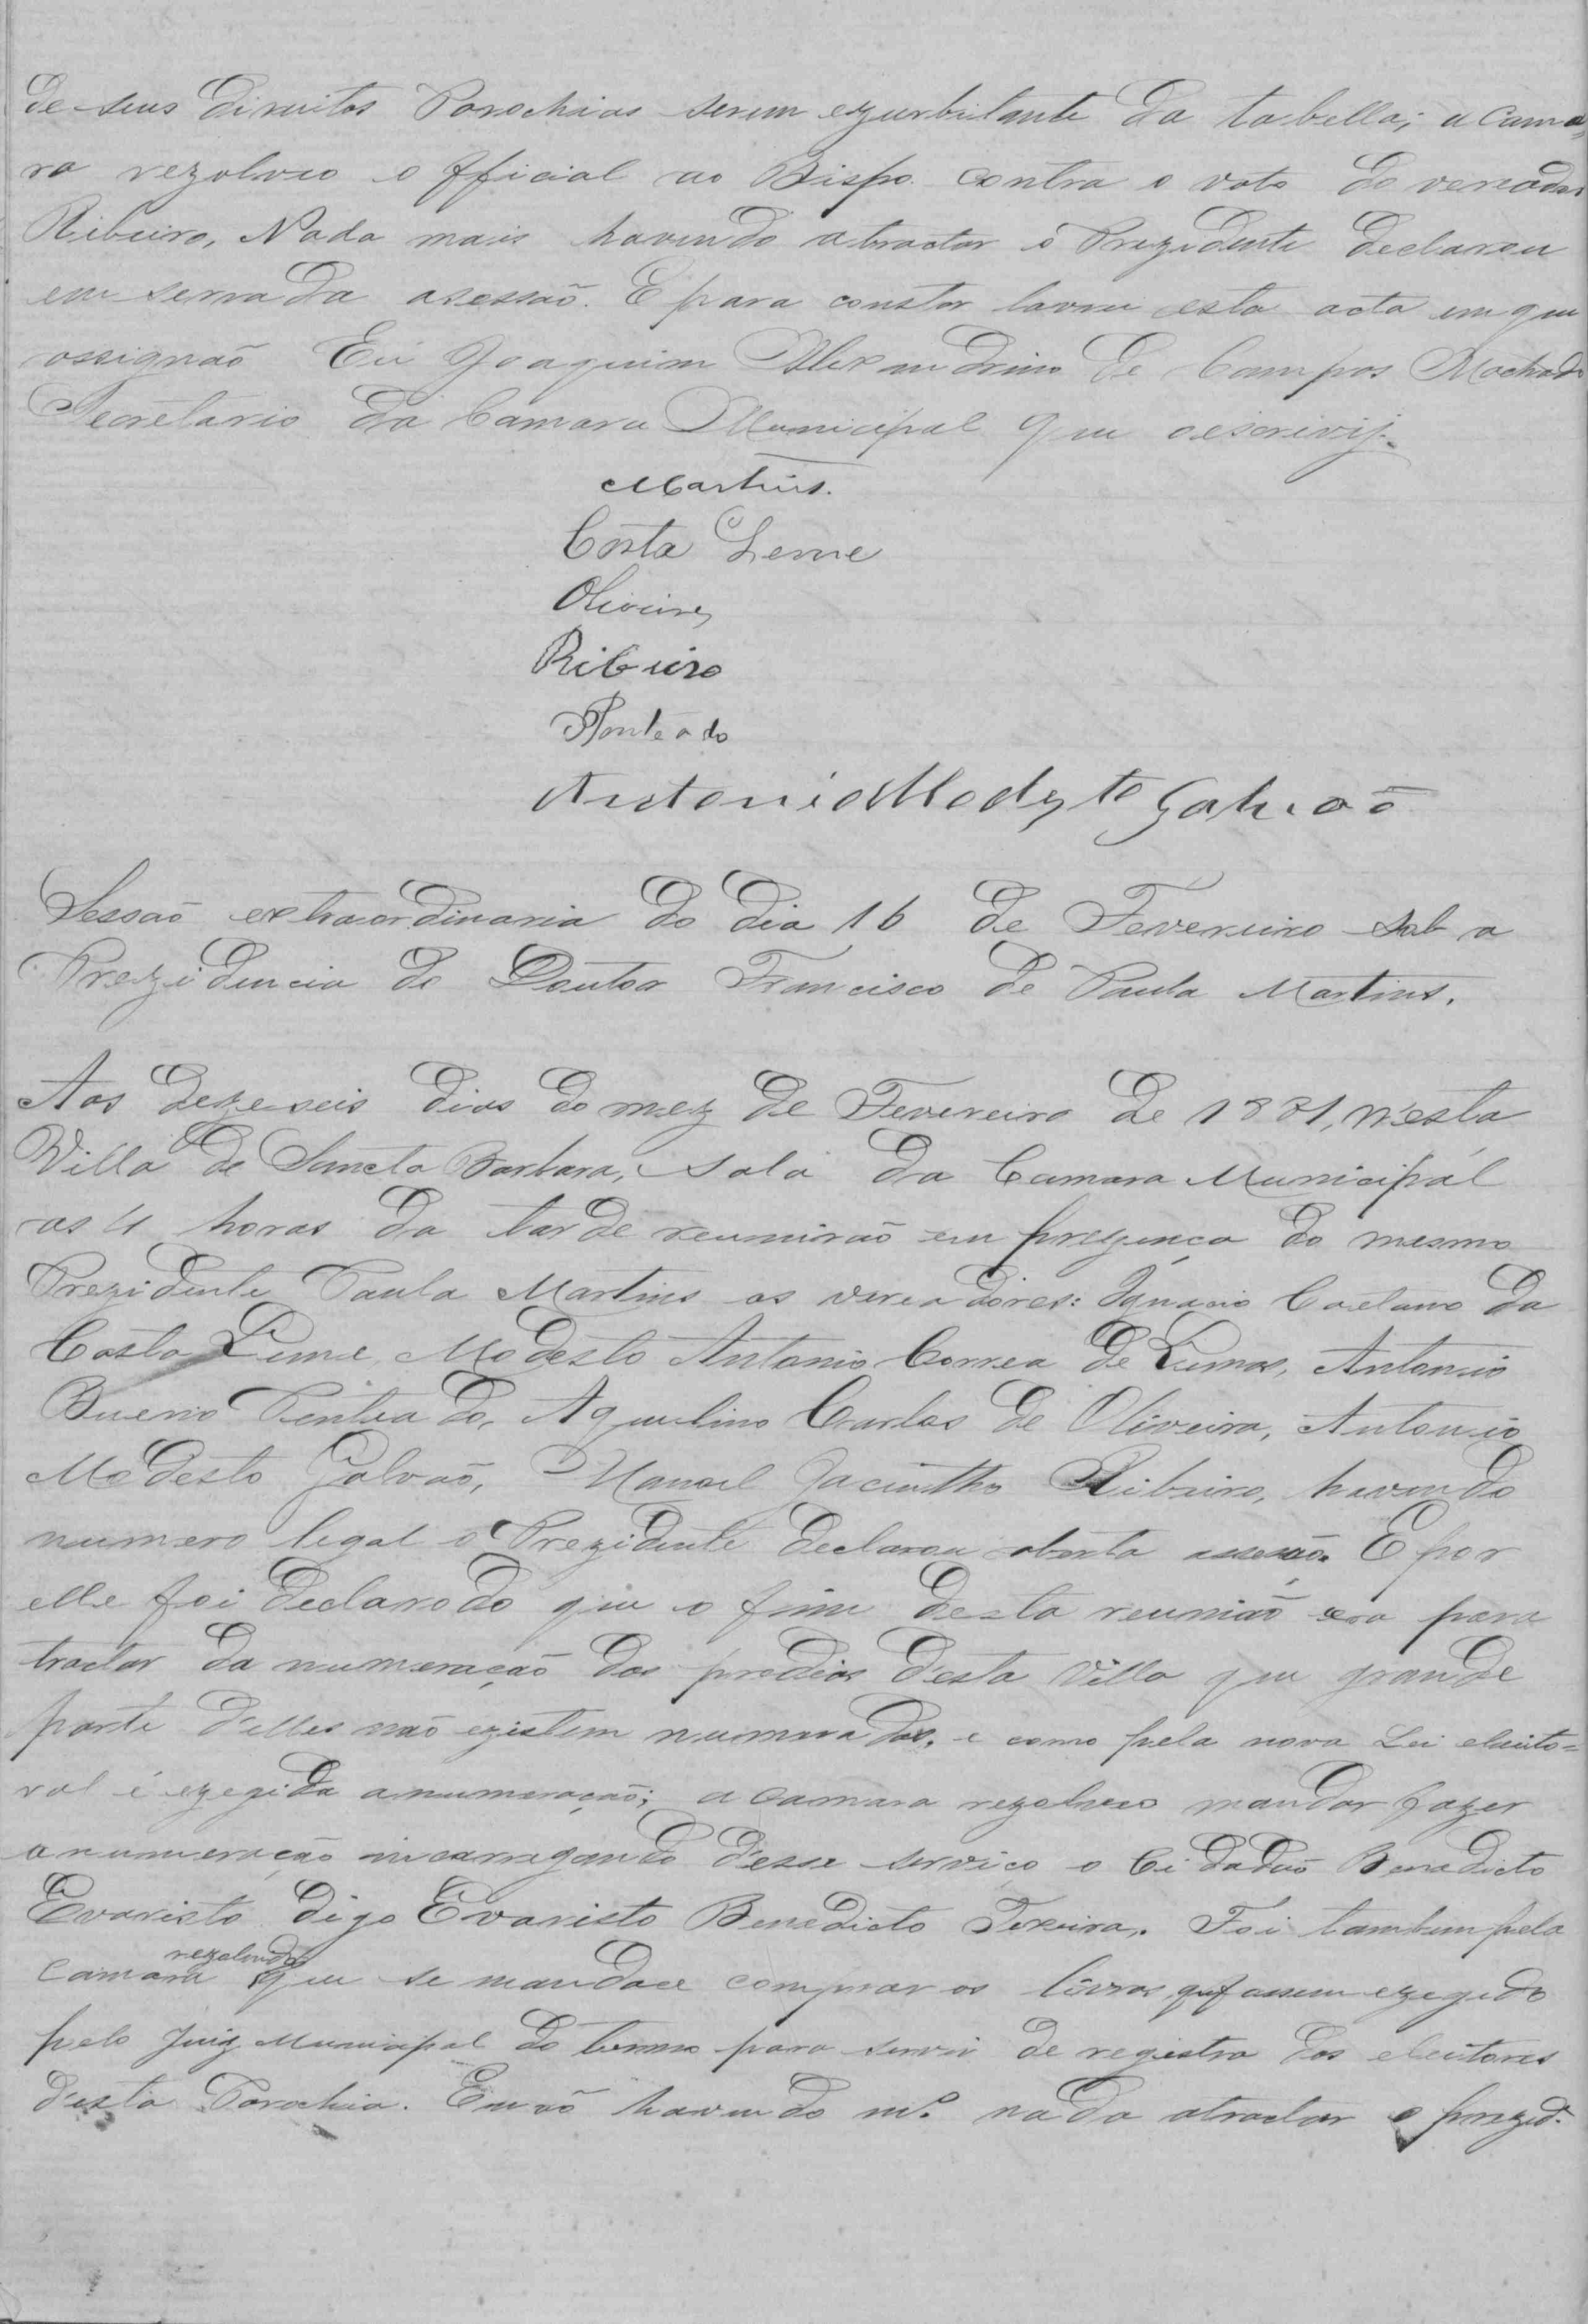 de seus direitos Parochias serem ezurbitante da tabella; a Cama=
ra rezolveo o fficial ao Bispo contra o voto do vereador
Ribeiro, Nada mais havendo atractar o Prezidente declarou
em serrada asessaõ. E para constar lavrei esta acta em que
assignaõ Eu Joaquim Alexandrino de Campos Machado
Secretario da Camara Municipal que oescrivij.
Martins.
Costa Leme
Oliveira
Ribeiro
Penteado
Antonio Modesto Galvaõ
Sessaõ extraordinaria do dia 16 de Fevereiro sob a
Prezidencia do Doutor Francisco de Paula Martins.
Aos dezeseis dias do mez de Fevereiro de 1881, n'esta
Villa de Sancta Barbara, sala da Camara Municipal
as 4 horas da tarde reuniraõ em prezença do mesmo
Prezidente Paula Martins os vereadores: Ignacio Caetano da
Costa Leme, Modesto Antonio Correa de Lemos, Antonio
Bueno Penteado, Aquilino Carlos de Oliveira, Antonio
Modesto Galvaõ, Manoel Jacintho Ribeiro, havendo
numero legal o Prezidente declarou aberta assessaõ. E por
elle foi declarado que o fim desta reuniaõ era para
tractar da numeraçaõ dos predios desta Villa que grande
parte d'elles naõ ezistem numerados, e como pela nova Lei eleito=
ral é ezegida anumeraçaõ; a camara rezolveo mandar fazer
a numeração incarregando d'esse serviço o Cidadaõ Benedicto
Evaristo digo Evaristo Benedicto Texeira,. Foi tambem pela
rezolvido
camara que se mandace comprar os livros, q' fossem ezegido
pelo Juiz Municipal do termo para servir de registro dos eleitores
desta Parochia. Em naõ havendo m.s nada atractar o prezid.